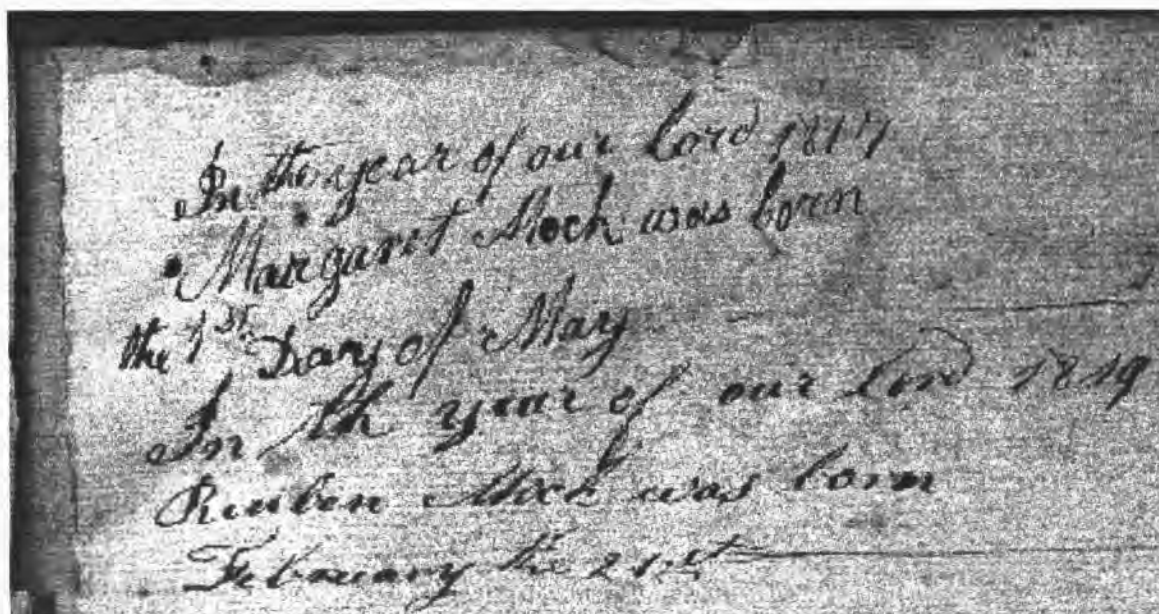 In the year of our Lord 1817
Margaret Mock was born
the 1st Day of May
In th year of our Lord 1819
Reuben Mock was born
February the 21st